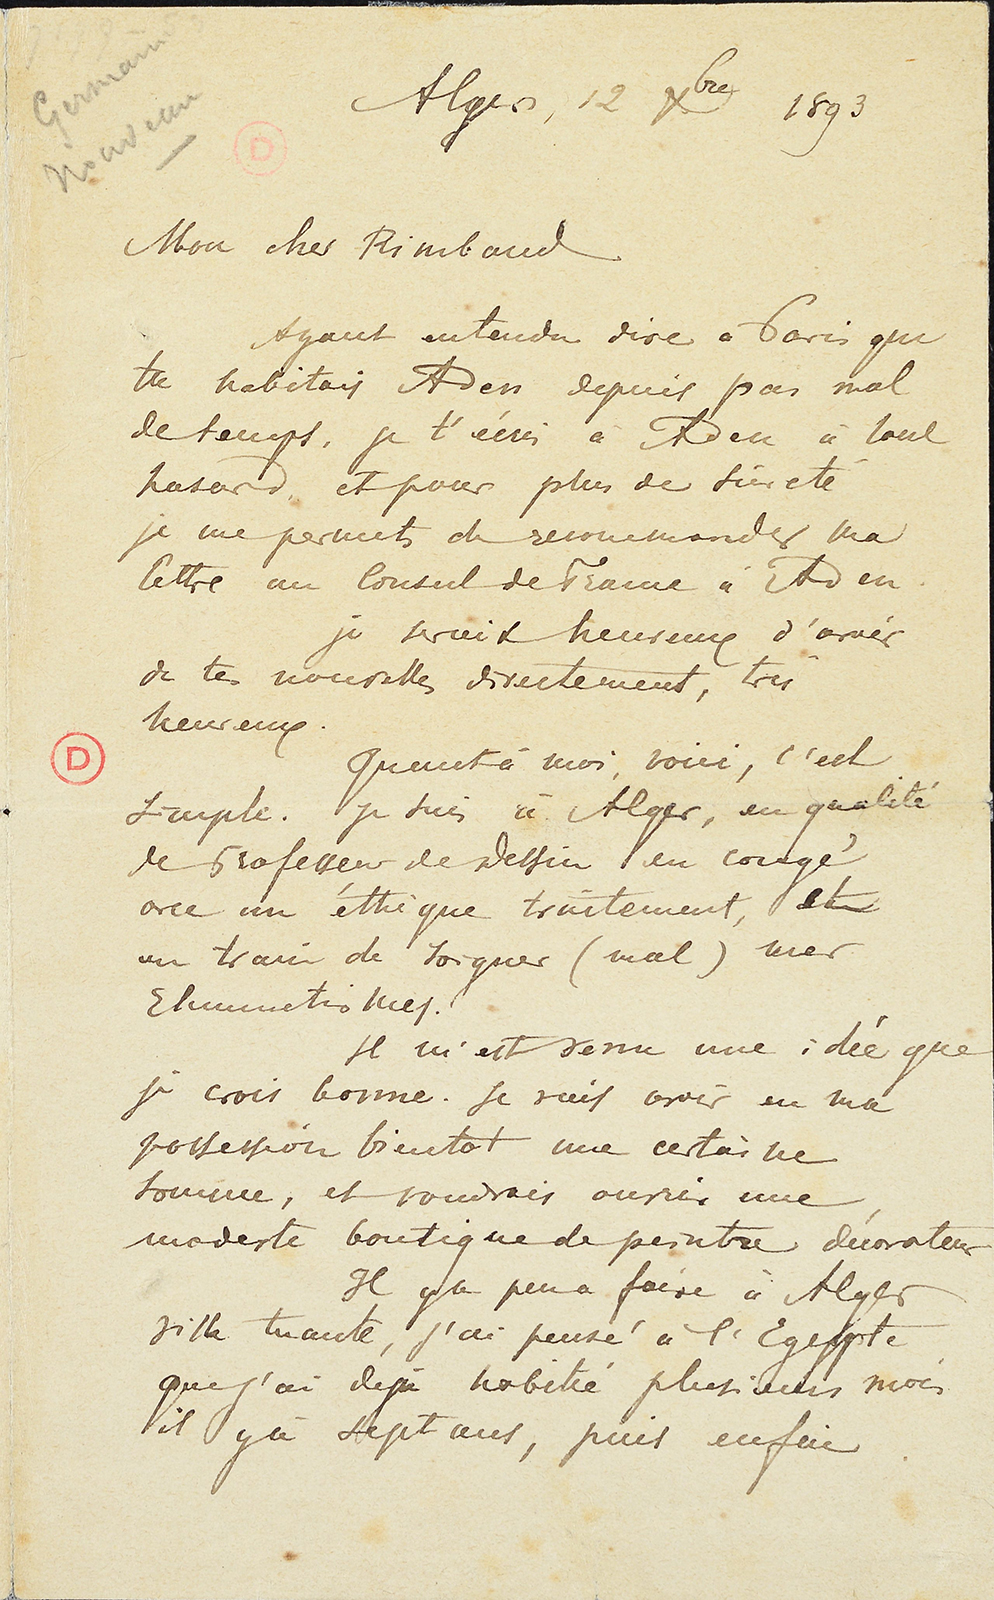 Germain
Nouveau
Alger, 12 Xbre 1893
D
Mon cher Rimbaud
Ayant entendu dire à Paris que
tu habitais Aden depuis pas mal
de temps, je t'écris à Aden à tout
hasard, et pour plus de sûreté
je me permets de recommander ma
lettre au Consul de France à Aden.
je serais heureux d'avoir
de tes nouvelles directement, très
heureux.
Quant à moi, voici, c'est
simple. je suis à Alger, en qualité
de Professeur de dessin en congé
avec un éthique traitement, et
en train de soigner (mal) mes
Rhumatismes.
Il m'est venu une idée que
je crois bonne. Je vais avoir en ma
possession bientôt une certaine
somme, et voudrais ouvrir une
modeste boutique de peintre décorateur
Il y a peu a faire à Alger
ville tuante, j'ai pensé à l'Egypte
que j'ai déjà habité plusieurs mois
il y a sept ans, puis enfin
D